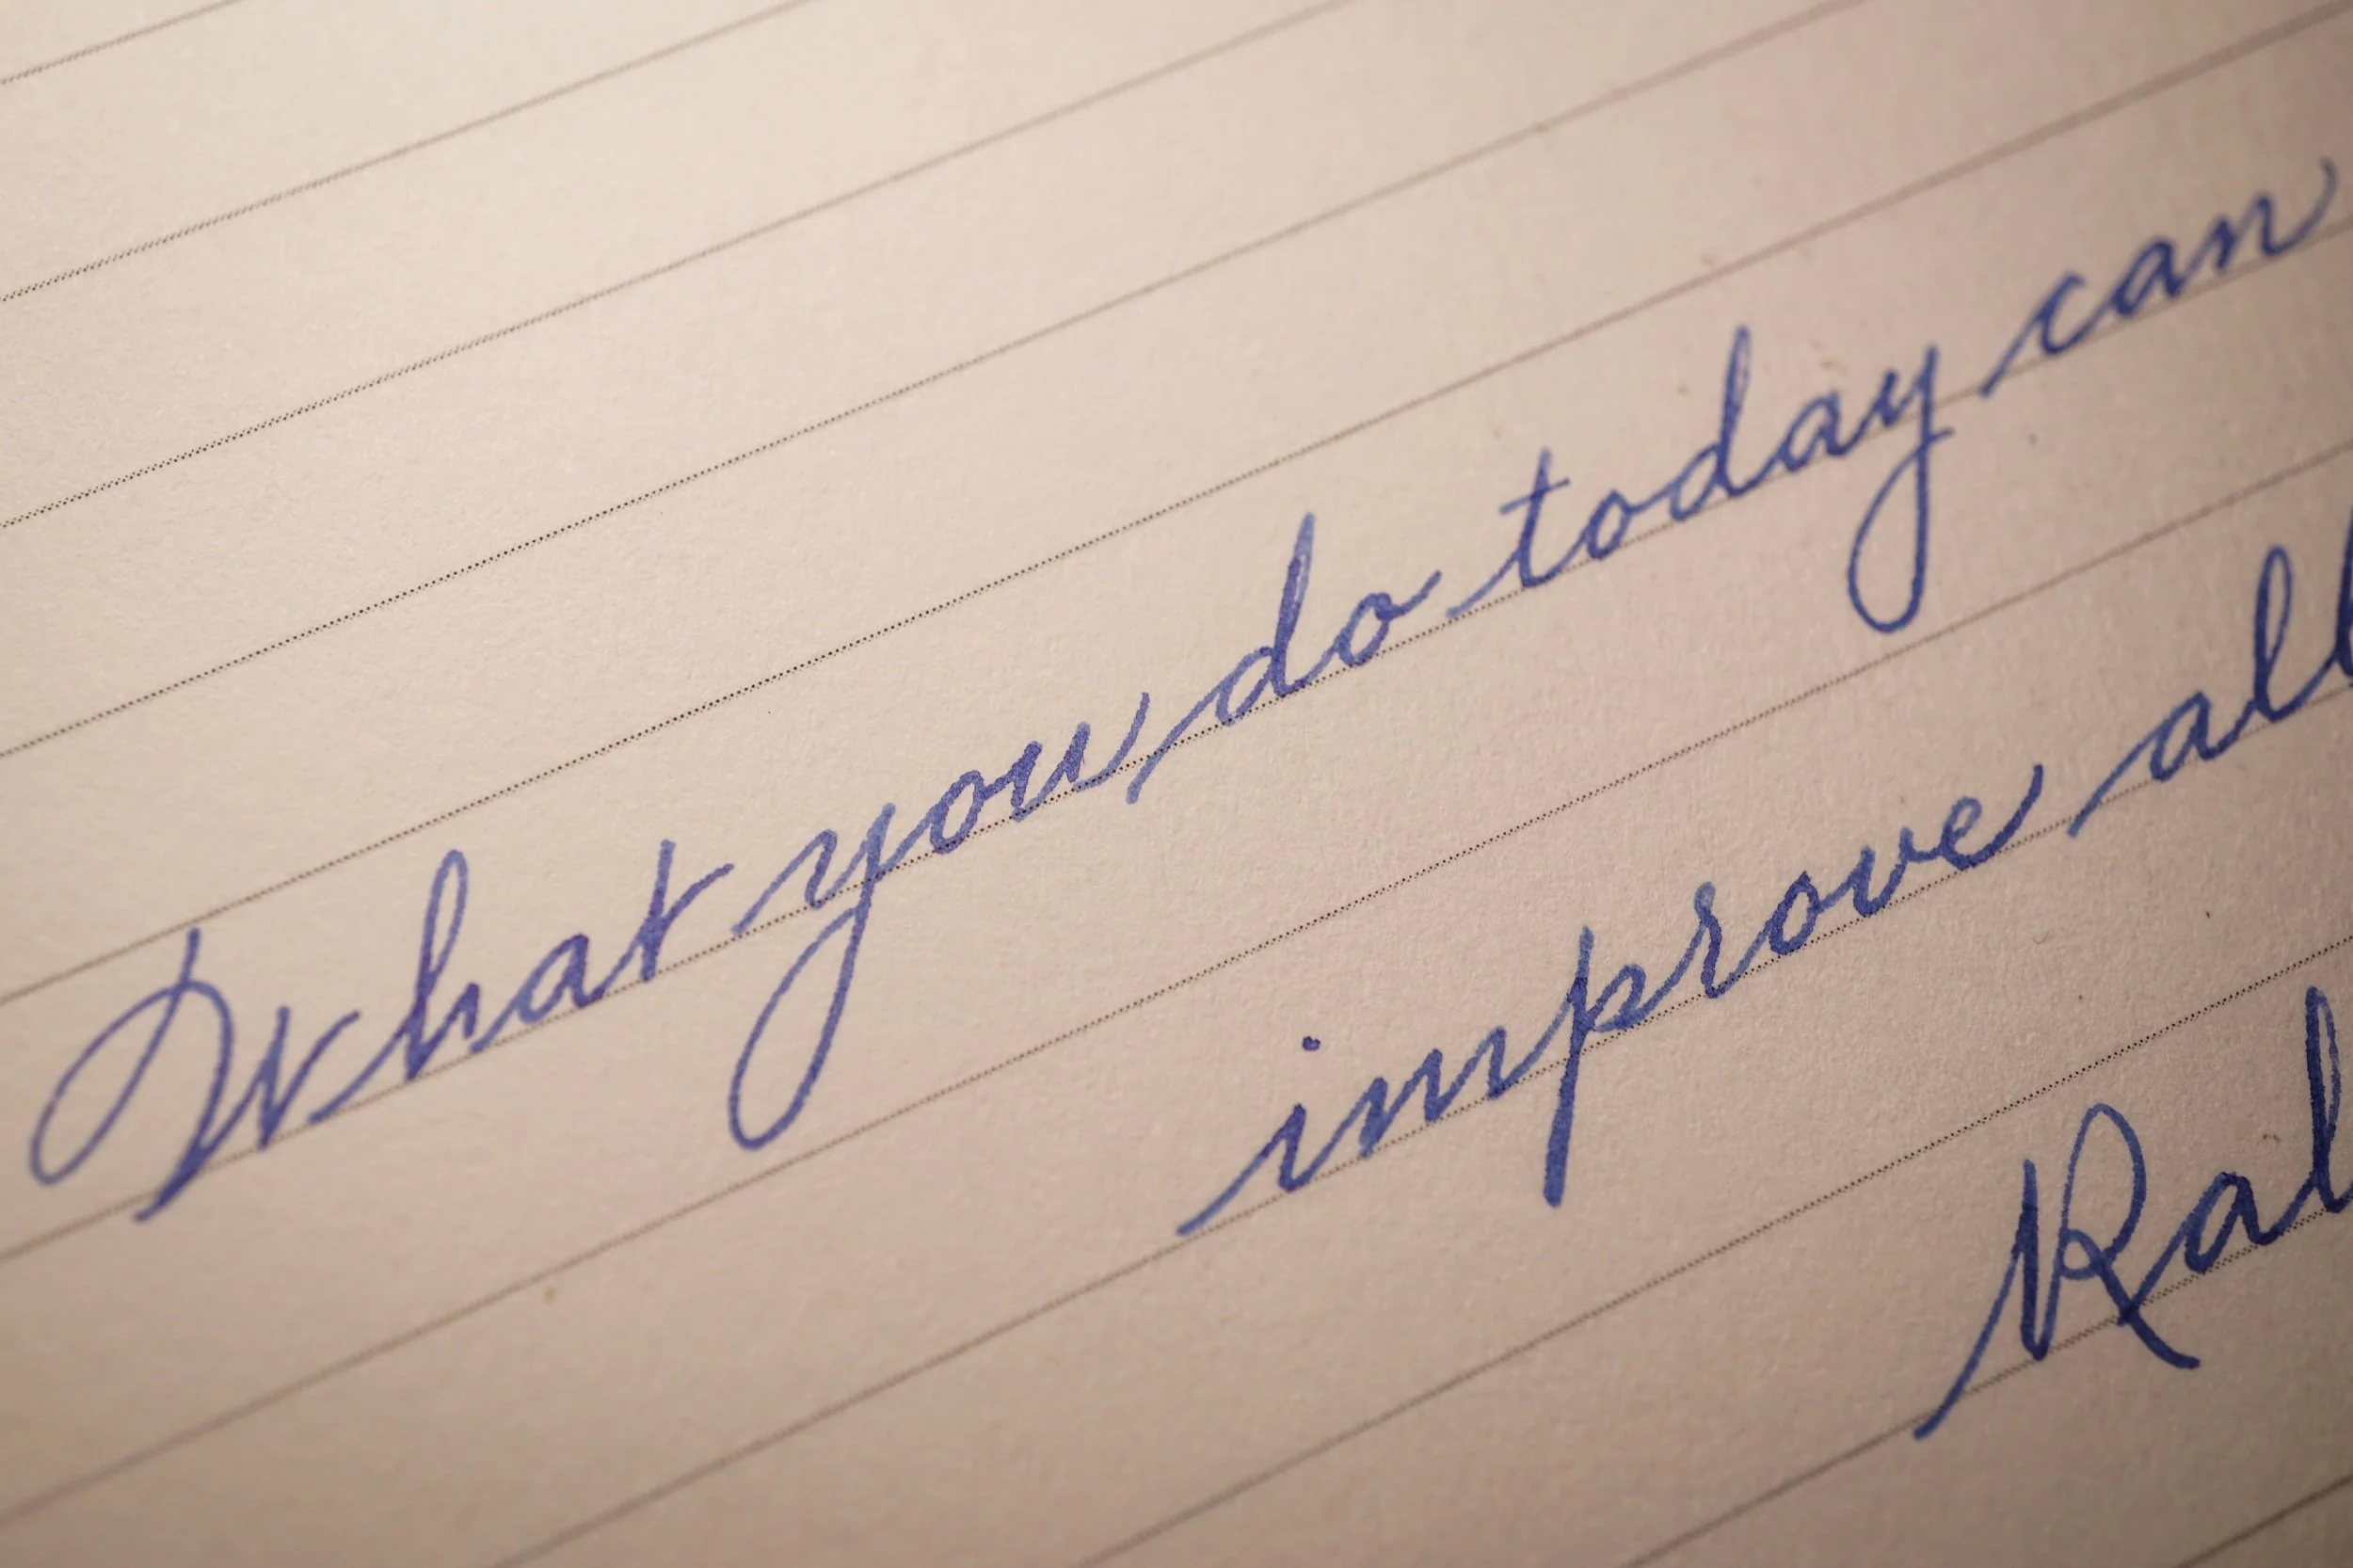 What you do today can
improve all
Ral